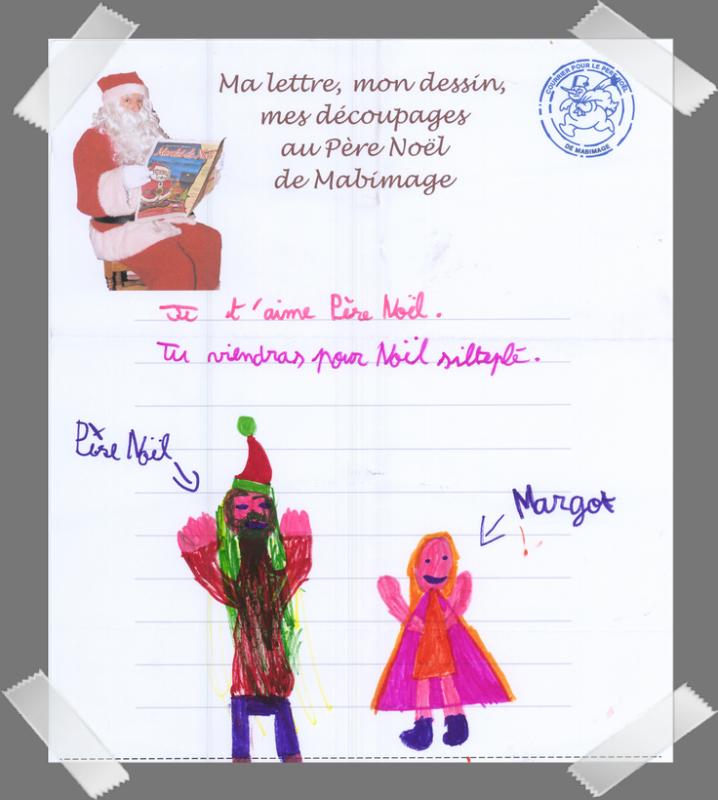 Ma lettre, mon dessin,
mes découpages
au Père Noël
de Mabimage
COURRIER POUR LE PERE NOËL
DE MABIMAGE
Marché de Noël
Je t'aime Père Noël.
Tu viendras pour Noël silteplé.
Père Noël
Margot